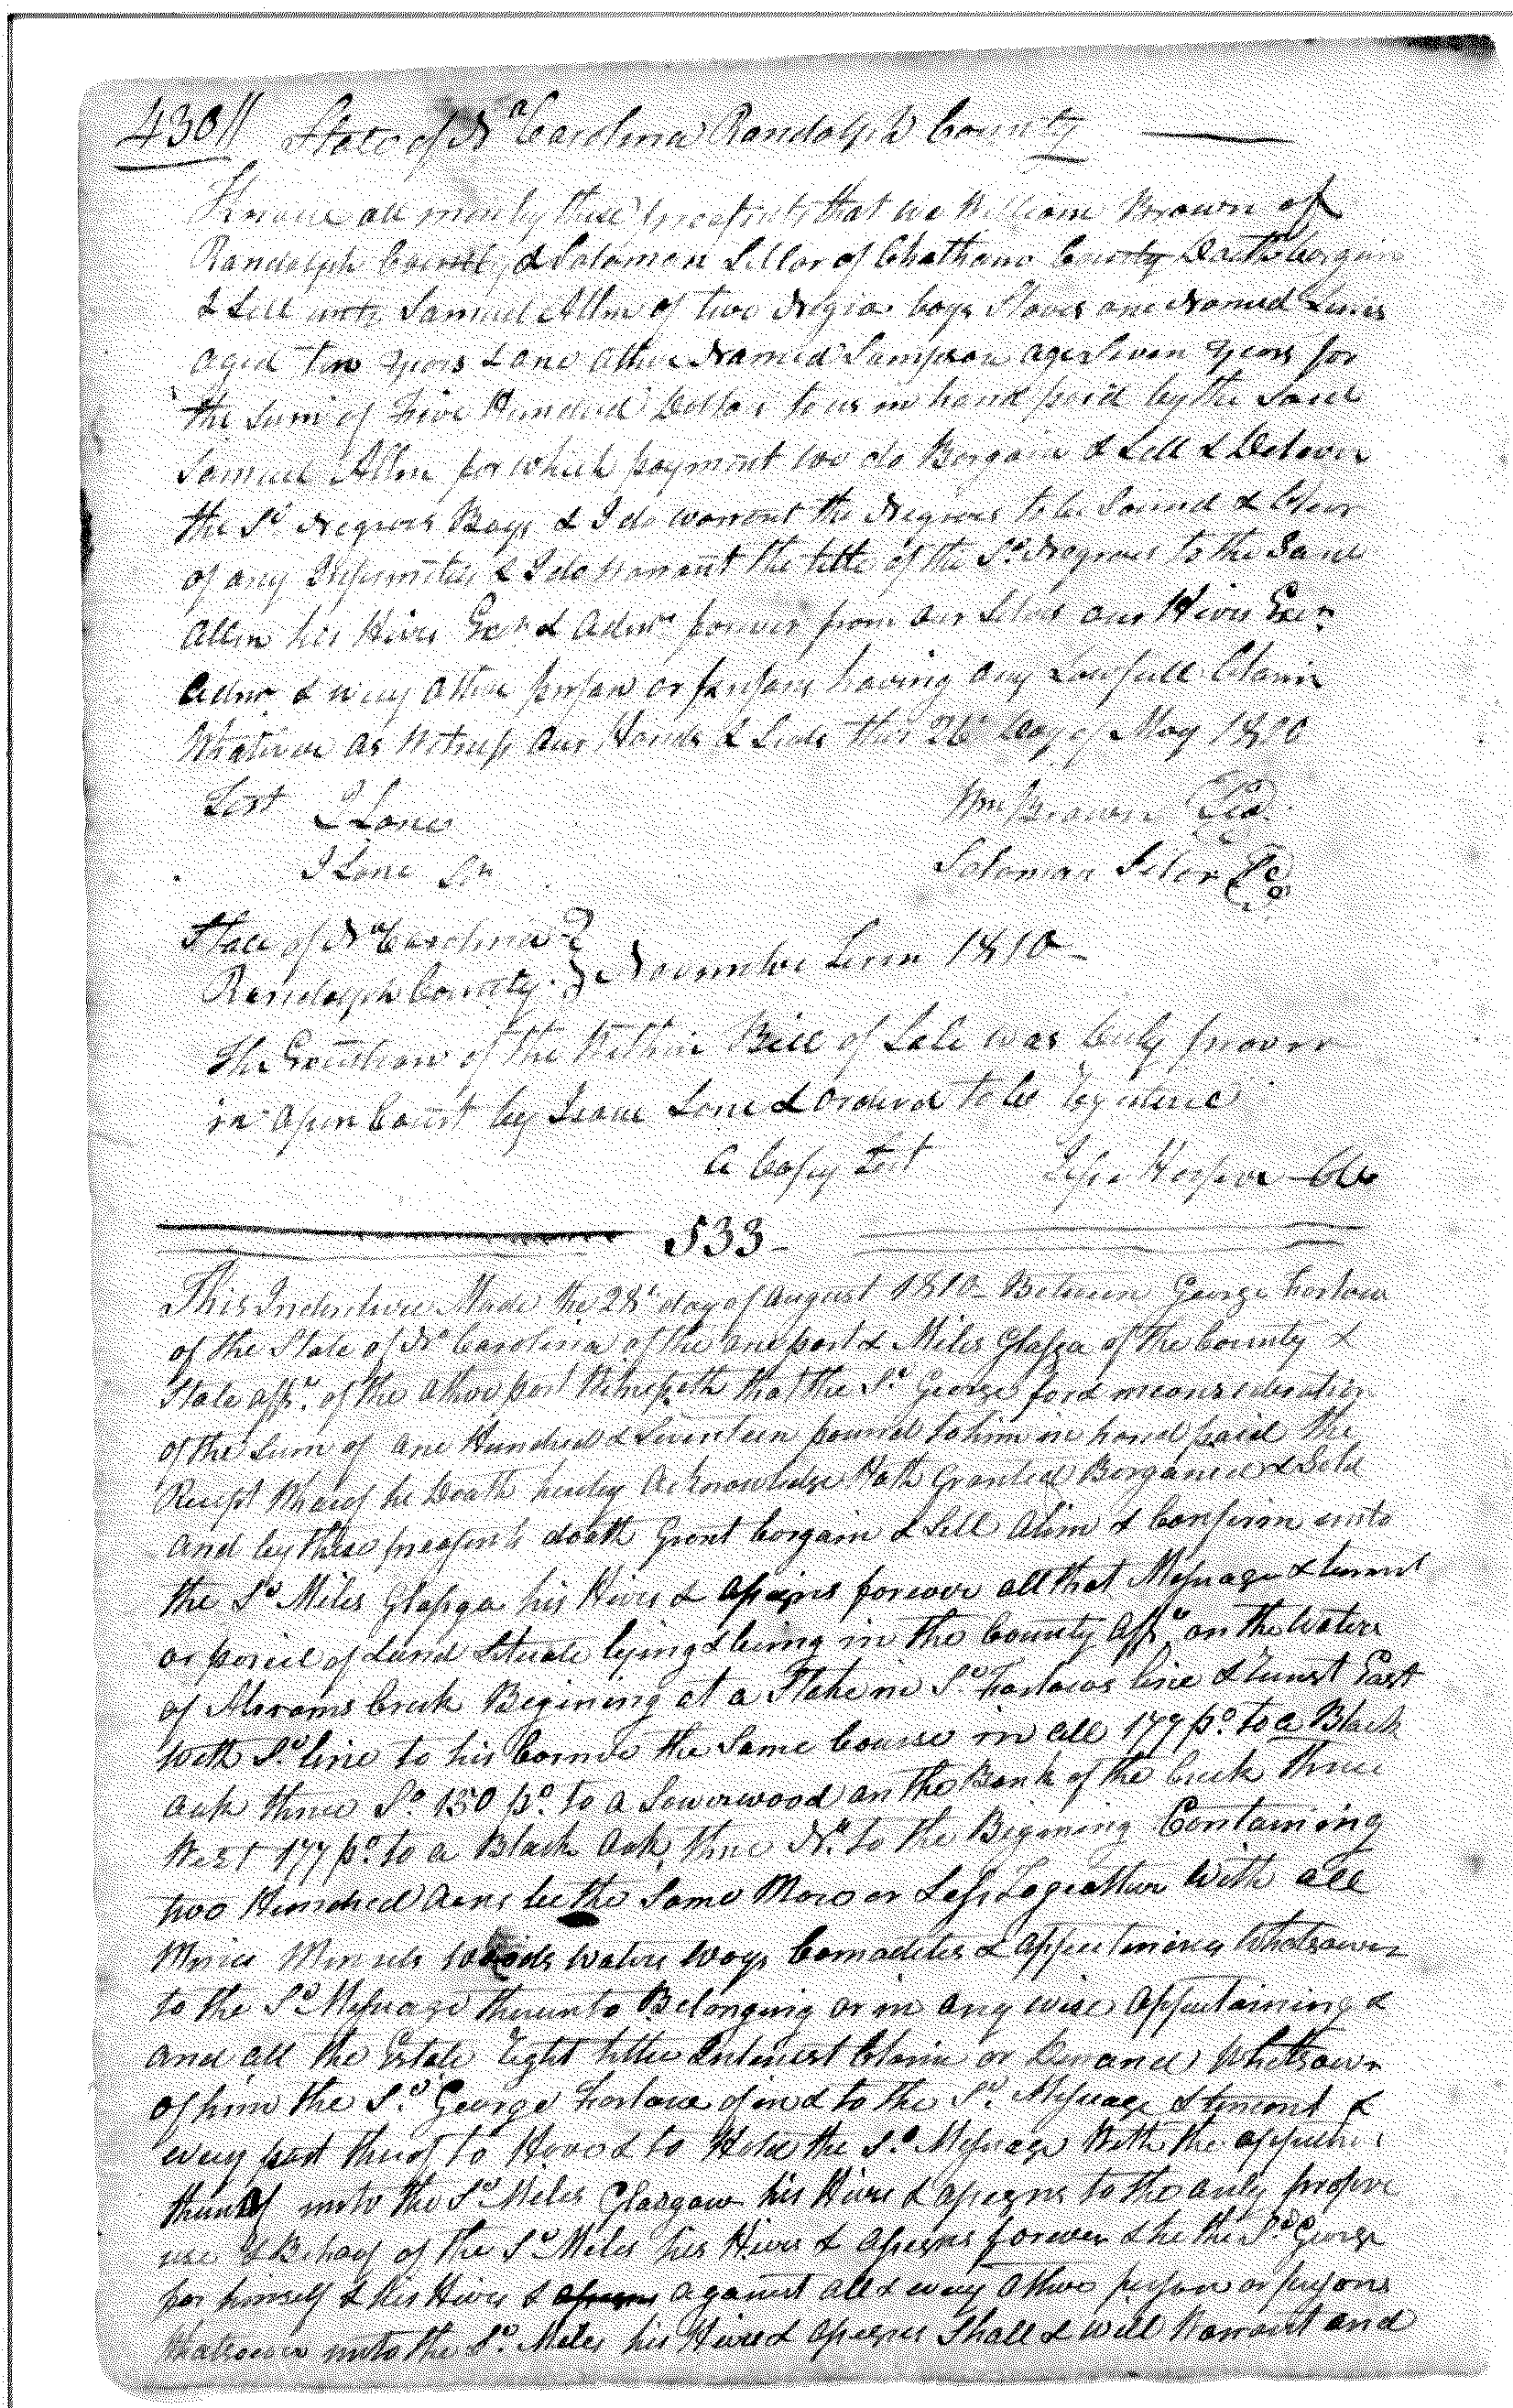 430//
State of No Carolina Randolph County
Know all men by these presents that we William Brown of
Randolph County & Solomon Siller of Chatham County Doath bargain
& Sell unto Samuel Allen of two Negro boys Slaves one Named
aged ten years & one other Named Sampson aged Seven years for
the Sum of Five Hundred Dollars to us in hand paid by the Said
Samuel Allen for which payment we do Bargain & Sell & Deliver
the Sd Negroes Boys & I do warrant the Negroes to be Sound & Clear
of any Infirmities & I do warrant the title of the Sd Negroes to the Said
Allen his Hires Exrs & Admrs forever from our Selves our Hires Exrs
Admr & every other person or persons having any Lawfull Claim
Whatever as Witness our Hands & Seals this 26 Day of May 1810
Test I Lane Wm Brown
I Lane Solomon Siler
State of No Carolina
Randolph County } November Term 1810
The Execution of the Within Bill of Sale was Duly proven
in open Court by Isaac Lane & ordered to be Registered
A Copy Test Jesse Harper Clk
533
This Indenture Made the 28th day of August 1810 Between George Farlow
of the State of No Carolina of the one part & Miles Glasga of the County &
State affd. of the other part Witnesseth that the Sd George for & in consideration
of the Sum of one Hundred & Seventeen pound to him in hand paid the
Receipt Whareof he Doath hereby Acknowledge Hath Granted Borganed & Sold
and by these presents doath Grant bargain & Sell Alien & Confirm unto
the Sd Miles Glasga his Hires & Assigns forever all that Messuage & tenment
or parcel of Land Situate lying & being in the County affd on the Waters
of Creek Begining at a Stake in Sd Farlows line & Runs East
With Sd line to his Corner the Same Course in all 177 po. to a Black
oak thence So. 150 po. to a Sowerwood on the Bank of the Creek thence
West 177 po. to a Black oak thence No. to the Begining Containing
two Hundred Acres be the Same More or Less Togeather With all
Mines Minrels Woods Waters Ways Comodites & appertinences Whatsoever
to the Sd Messuage thereunto Belonging or in any wise Appertaining &
and all the Estate Right tittle Interest Claim or Demand Whatsoever
of him the Sd. George Farlow of in & to the Sd. Messuage & tenment &
every part thereof to Have & to Hold the Sd Messuage With the
thereof unto the Sd Miles Glasgaw his Hires & assigns to the only proper
use & Behoof of the Sd Miles his Hires & assigns forever & he the Sd George
for himself & his Hires & assigns against all & every other person or persons
Whatsoever unto the Sd. Miles his Hires & assigns Shall & will Warrant and